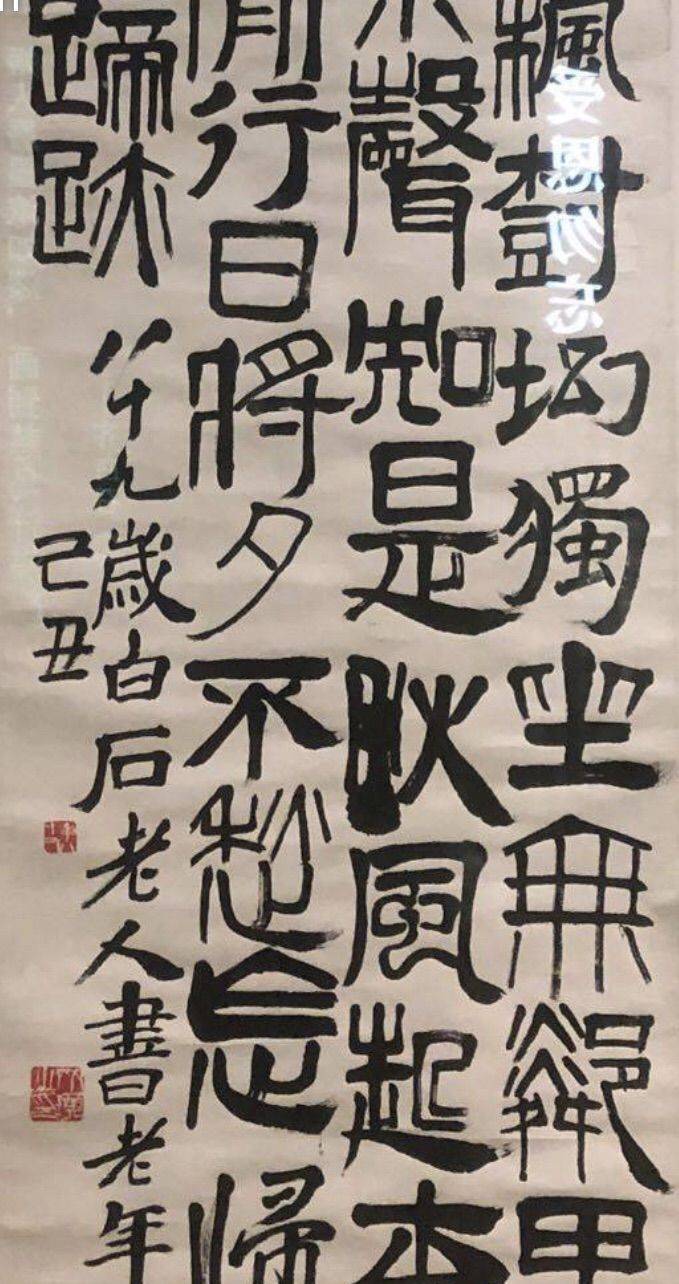 楓樹坳獨坐無鄰
聲知是秋風起
閒行日將夕不愁忘歸
蹄跡
八十九歲白石老人書老年
己丑
受恩勿忘